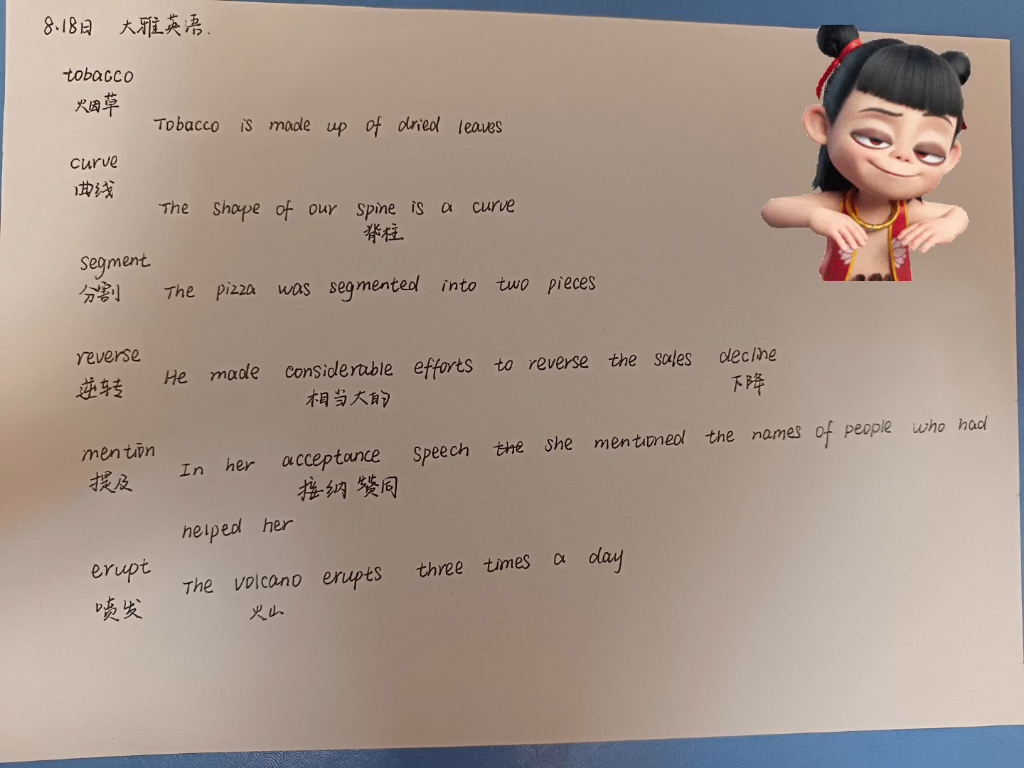 8.18日 大雅英语.
tobacco
烟草
Tobacco is made up of dried leaves
curve
曲线
The shape of our spine is a curve
脊柱
segment
分割 The pizza was segmented into two pieces
reverse
逆转 He made considerable efforts to reverse the sales decline
相当大的 下降
mention
提及 In her acceptance speech the she mentioned the names of people who had
接纳 赞同
helped her
erupt
喷发 The volcano erupts three times a day
火山